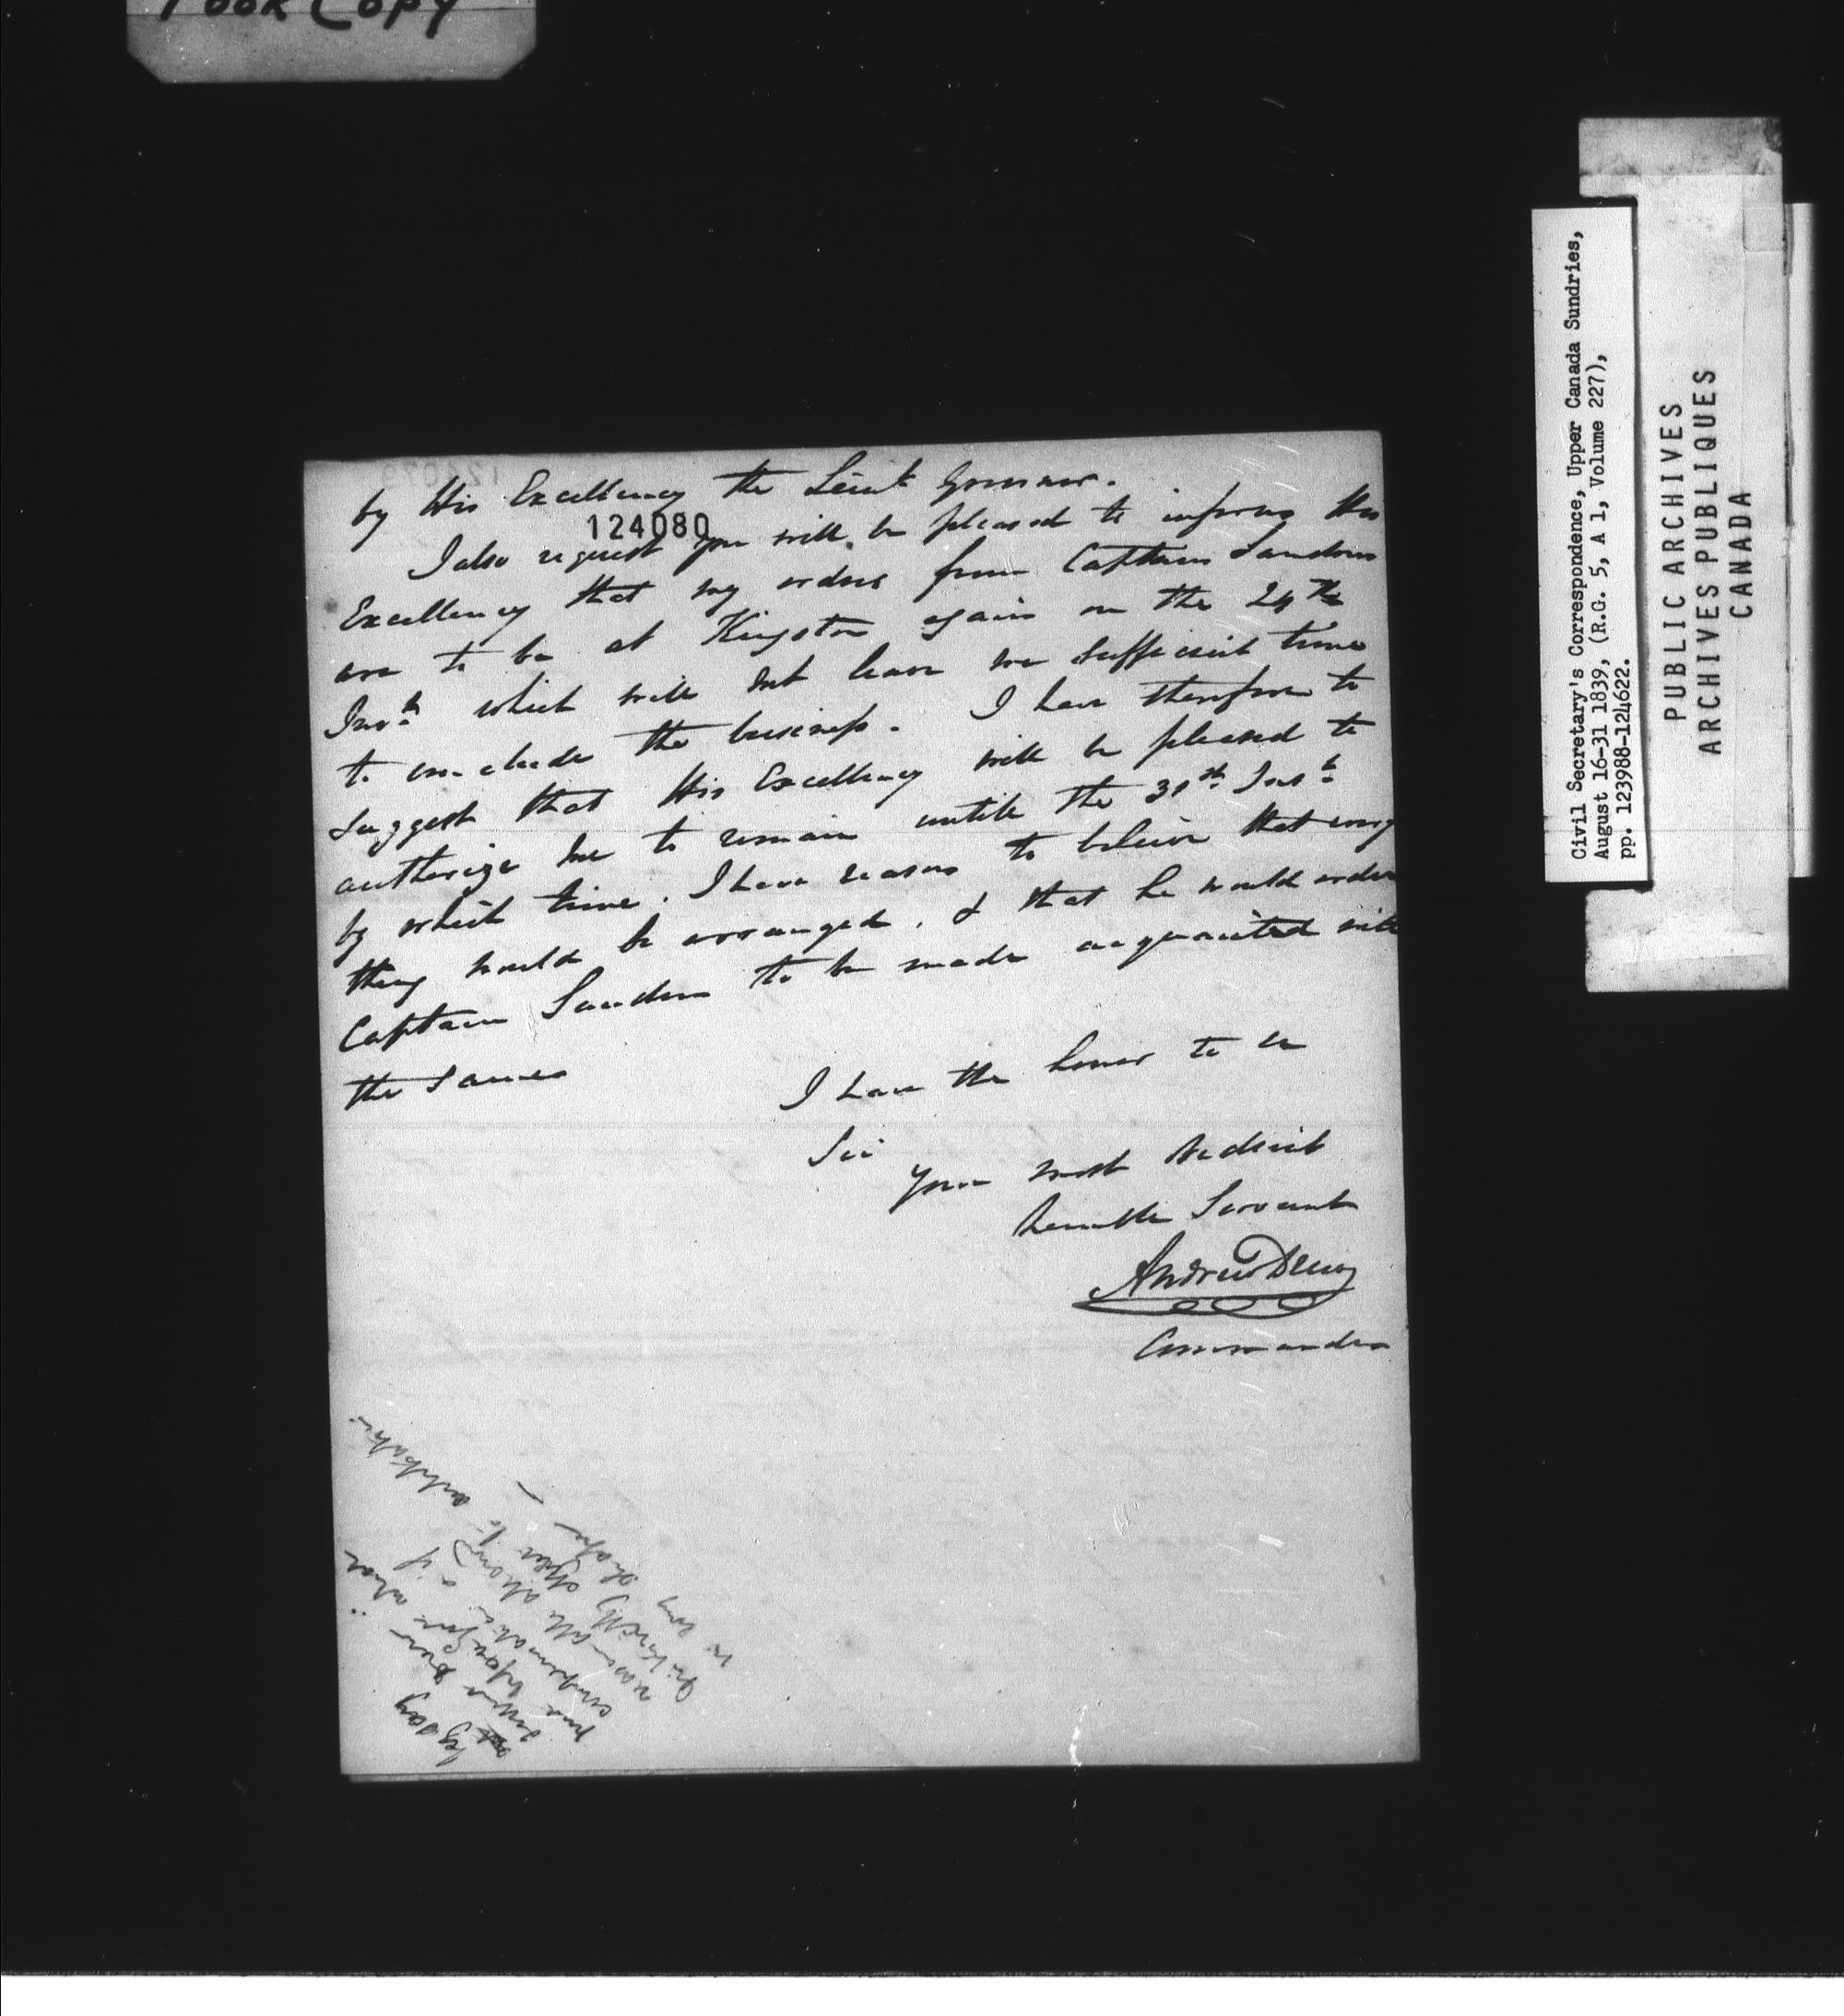 Poor Copy
by His Excellency the Lieut Governor.
124080
I also request you will be pleased to inform His
Excellency that my orders from Captain Sandom
are to be at Kingston again on the 24th
Inst which will not leave me sufficient time
to conclude the business. I have therefore to
suggest that His Excellency will be pleased to
authorize me to remain until the 31st Inst
by which time, I have reason to believe that every
thing would be arranged, & that he would order
Captain Sandom to be made acquainted with
the same
I have the honor to be
Sir
Your most obedient
humble Servant
Andrew Drew
Commander
Civil Secretary's Correspondence, Upper Canada Sundries,
August 16-31 1839, (R.G. 5, A 1, Volume 227),
pp. 123988-124622.
PUBLIC ARCHIVES
ARCHIVES PUBLIQUES
CANADA